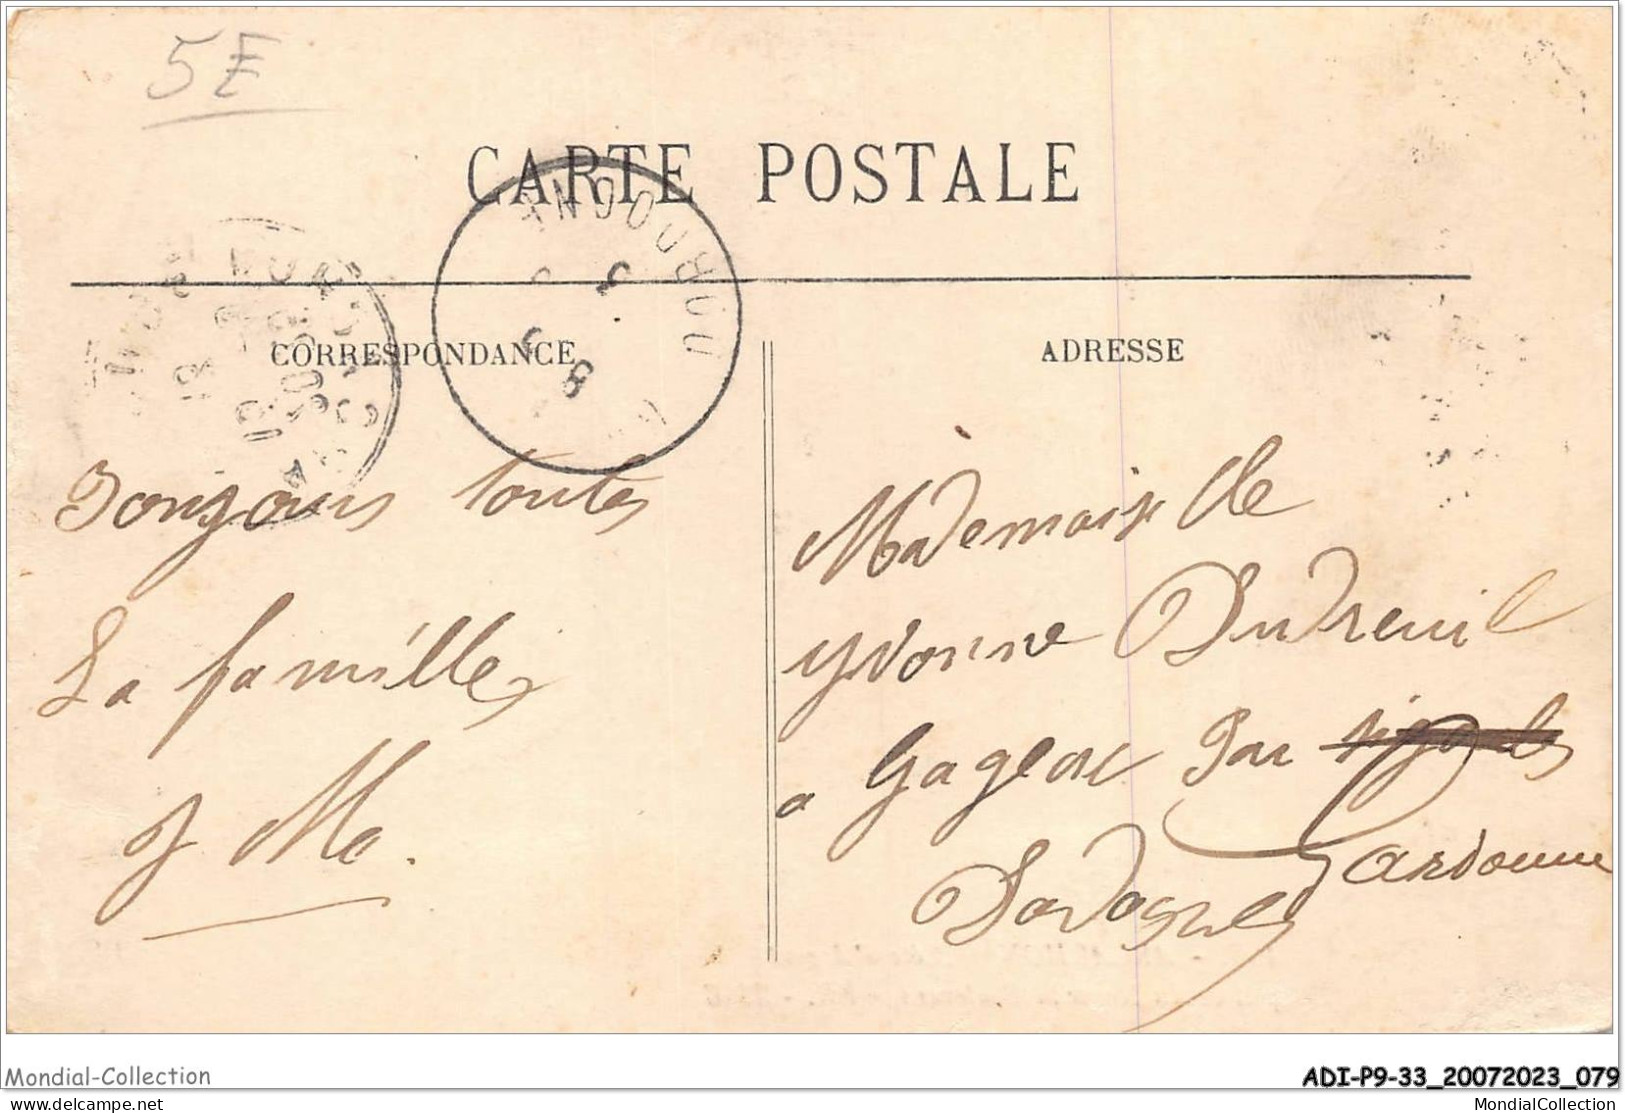 5E
CARTE POSTALE
CORRESPONDANCE
ADRESSE
Bonjour toutes
La famille
J Me.
Mademoiselle
Yvonne Dutreuil
a Gageac par
Gardonne
Dordogne
Mondial-Collection
ADI-P9-33_20072023_079
delcampe.net
MondialCollection